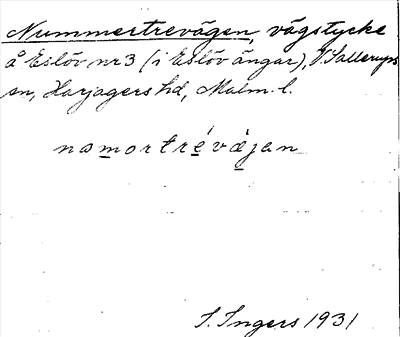 Nummertrevägen, vägstycke
å Eslöv nr 3 (i Eslöv ängar), V. Sallerups
sn, Harjagers hd, Malm. l.
namortrévǽjan
I. Ingers 1931